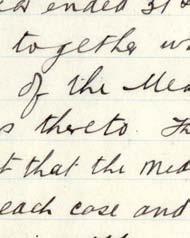 ended 31
together w
of the Mea
s thereto. Th
t that the Med
each case and